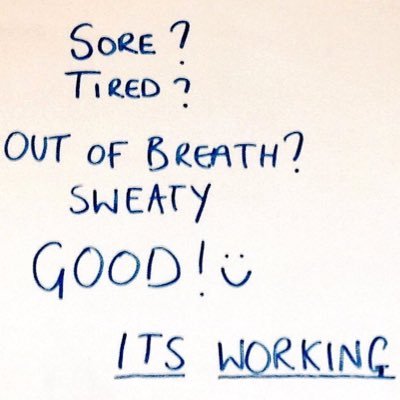 SORE?
TIRED?
OUT OF BREATH?
SWEATY
GOOD! ّن
ITS WORKING